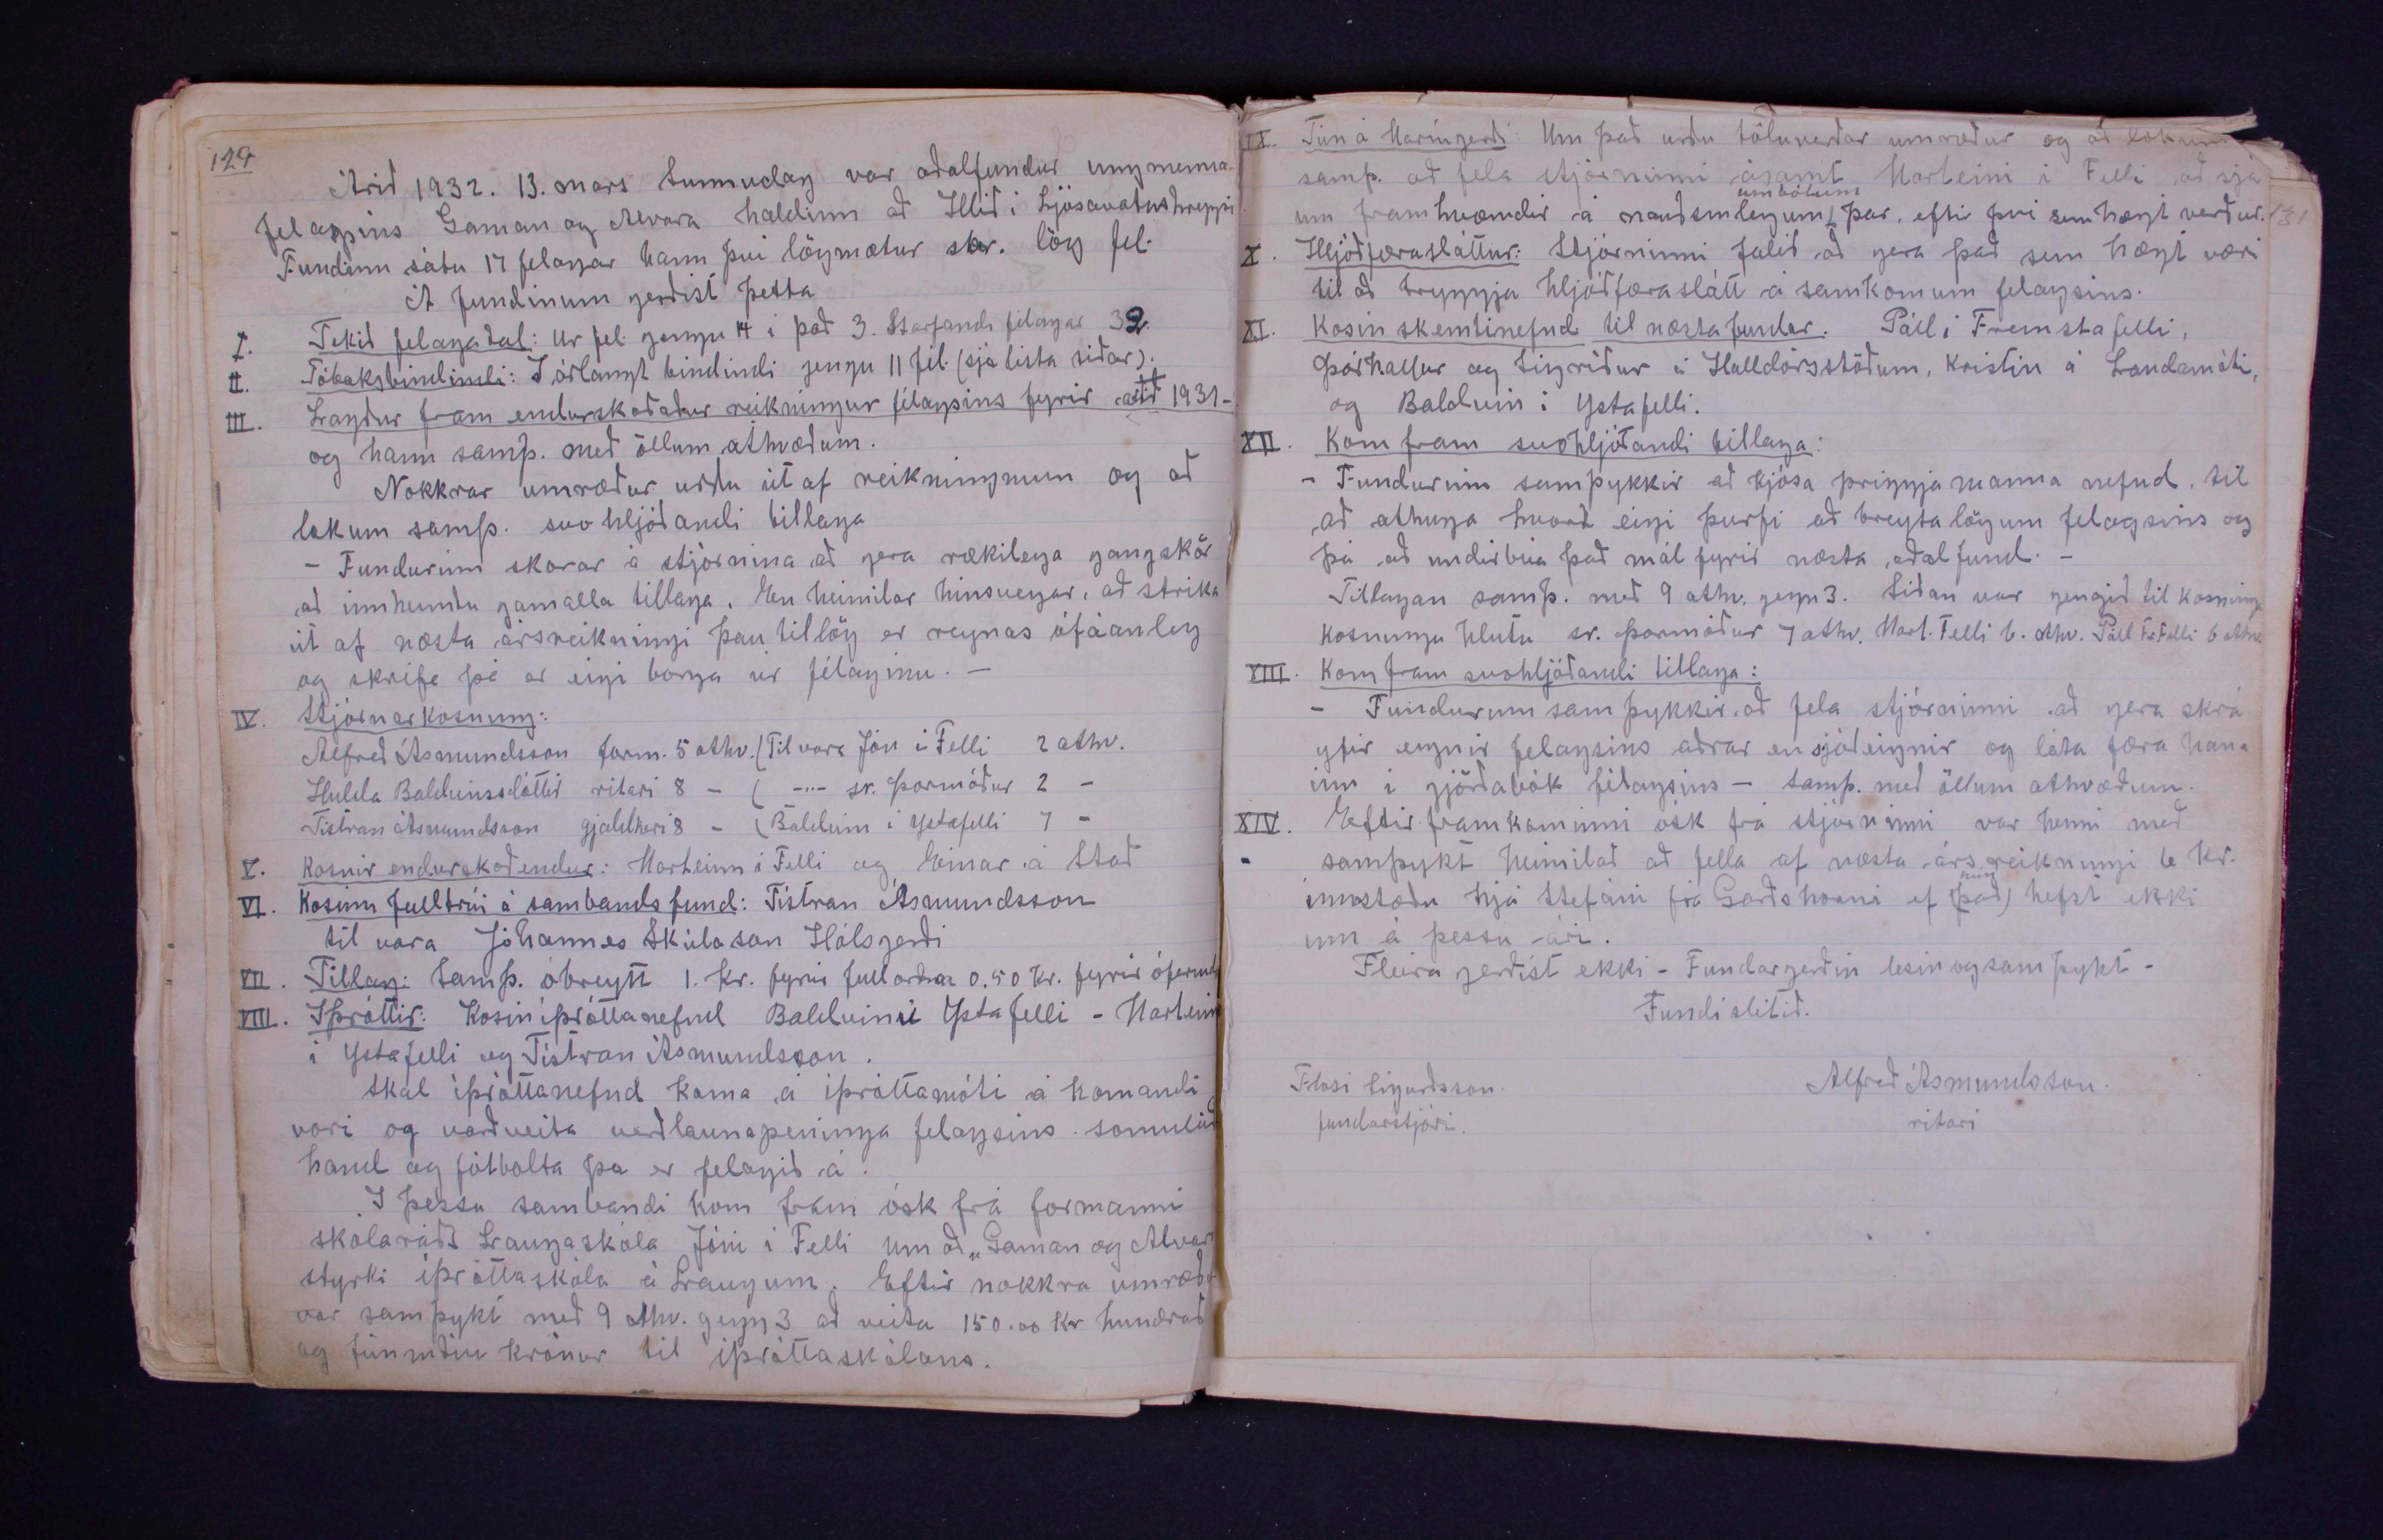 129
Árið 1932. 13. mars Sunnudag var aðalfundur ungmenna-
felagsins Gaman og Alvara haldinn að Illið i Ljósavatnshreppi
Fundinn sátu 17 felagar hann því lögmætur skv. lög fel.
Á fundinum gerðist þetta
I. Tekið felagatal: Ur fel. gengu 14 i það 3. Starfandi félagar 32.
II. Tóbaksbindindi: I árlangt bindindi gengu 11 fél. (sjá lista siðar).
III. Lagður fram endurskoðaður reikningur félagsins fyrir árið 1931-
og hann samþ. með öllum atkvæðum.
Nokkrar umræður urðu út af reikningnum og að
lokum samþ. svo hljóðandi tillaga
- Fundurinn skorar á stjórnina að gera rækilega gangskör
að innheimtu gamalla tillaga. En heimilar hinsvegar, að strika
út af næsta ársreikningi þau tillög er reynas ófáanleg
og skrifa þá er eigi borga úr félaginu. -
IV. Stjórnarkosning:
Alfreð Ásmundsson form. 5 athv. (Til vara Jón i Felli 2 athv.
Hulda Baldvinsdóttir ritari 8 - ( -"- sr. Þormóður 2 -
Tistran Ásmundsson gjaldkeri 8 - (Baldvin i Ystafelli 7 -
V. Kosnir endurskoðendur: Marteinn i Felli og Einar á Stað
VI. Kosinn fulltrúi á sambandsfund: Tistran Ásmundsson
til vara Jóhannes Skúlason Hólsgerði
VII. Tillag: Samþ. óbreytt 1. kr. fyrir fullorðna 0.50 kr. fyrir ófermd
VIII. Iþróttir: Kosin íþróttanefnd Baldvin i Ystafelli - Marteinn
i Ystafelli og Tistran Ásmundsson.
Skal íþróttanefnd koma á iþróttamóti á komandi
vori og varðveita verðlaunapeninga felagsins. sömuleið
hand og fótbolta þa er felagið á.
I þessu sambandi kom fram ósk frá formanni
skólaráðs Laugaskóla Jóni i Felli um að „Gaman og Alvar
styrki íþróttaskóla á Laugum. Eftir nokkra umræðu
var samþykt með 9 athv. gegn 3 að veita 150.00 kr hundrað
og fimmtiu krónur til iþróttaskólans.
131
IX. Tún á Maríugerði: Um það urðu töluverðar umræður og að lokum
samþ. að fela stjórninni ásamt Marteini i Felli að sjá
um framkvæmdir á nauðsinlegum umbótum þar, eftir þvi sem hægt verður.
X. Hljóðfærasláttur: Stjórninni falið að gera það sem hægt væri
til að tryggja hljóðfæraslátt á samkomum felagsins.
XI. Kosin skemtinefnd til næsta fundar. Páll i Fremstafelli,
Þórhallur og Sigríður á Halldórsstöðum, Kristín á Landamóti,
og Baldvin i Ystafelli.
XII. Kom fram svohljóðandi tillaga:
- Fundurinn samþykkir að kjósa þriggja manna nefnd, til
að athuga hvort eigi þurfi að breyta lögum felagsins og
þá að undirbúa það mál fyrir næsta aðalfund. -
Tillagan samþ. með 9 athv. gegn 3. Siðan var gengið til kosninga
kosningu hlutu sr. Þormóður 7 athv. Mart. Felli 6. athv. Páll Fr.Felli 6 athv.
XIII. Kom fram svohljóðandi tillaga:
- Fundurinn samþykkir að fela stjórninni að gera skrá
yfir eignir felagsins aðrar en sjóðeignir og láta færa hana
inn i gjörðabók félagsins - Samþ. með öllum athvæðum.
XIV. Eftir framkominni ósk frá stjórninni var henni með
- samþykt heimilað að fella af næsta ársreikningi 6 kr.
innstæðu hjá Stefáni frá Garðshorni ef (það) hun hefst ekki
inn á þessu ári.
Fleira gerðist ekki - Fundargerðin lesin og samþykt -
Fundi slitið.
Flosi Sigurðsson.
fundarstjóri.
Alfreð Ásmundsson.
ritari